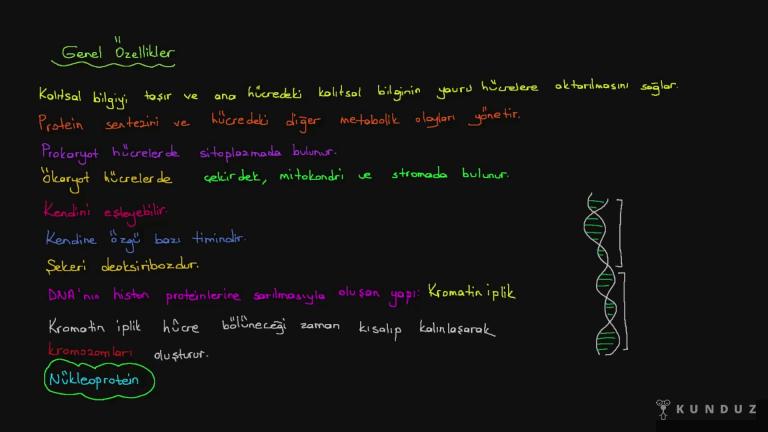 Genel Özellikler
Kalıtsal bilgiyi taşır ve ana hücredeki kalıtsal bilginin yavru hücrelere aktarılmasını sağlar.
Protein sentezini ve hücredeki diğer metabolik olayları yönetir.
Prokaryot hücrelerde sitoplazmada bulunur.
Ökaryot hücrelerde çekirdek, mitokondri ve stromada bulunur.
Kendini eşleyebilir.
Kendine özgü bazı timindir.
Şekeri deoksiribozdur.
DNA'nın histon proteinlerine sarılmasıyla oluşan yapı: Kromatin iplik
Kromatin iplik hücre bölüneceği zaman kısalıp kalınlaşarak
kromozomları oluşturur.
Nükleoprotein
KUNDUZ